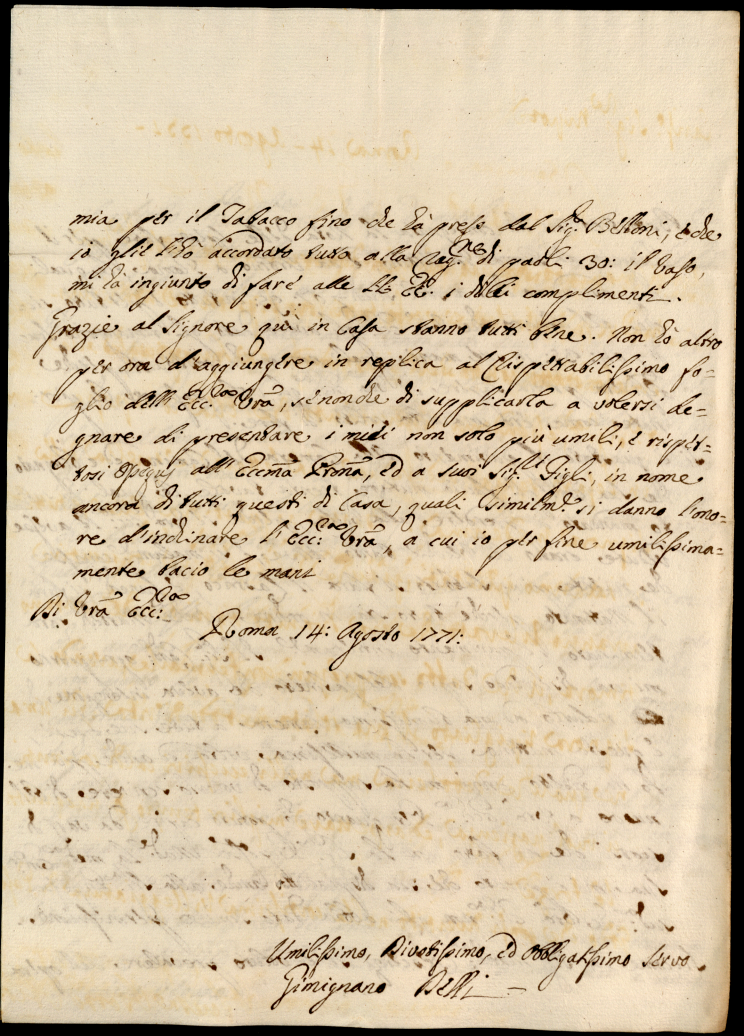 mia per il Tabacco fino che hà preso dal Sig.r Belloni, e che
io glie l'hò accordato tutto alla rag.ne di paoli 30: il vaso,
mi hà ingiunto di fare alle LL. EE. i di lei complimenti.
Grazie al Signore quì in Casa stanno tutti bene. Non hò altro
per ora d'aggiungere in replica al Rispettabilissimo fo=
glio dell'Ecc.za Vrã, se non che di supplicarla a volersi de=
gnare di presentare i miei non solo più umili, e rispet=
tosi ossequj all'Eccm̃a Pron̄a, ed a suoi Sig.ri Figli, in nome
ancora di tutti questi di Casa, quali similm.e si danno l'ono=
re d'inchinare l'Ecc.za Vrã, a cui io per fine umilissima=
mente bacio le mani
Di Vrã Ecc.za
Roma 14: Agosto 1771:
Umilissimo, Divotissimo, ed Obbligatissimo Servo
Gimignano Belli